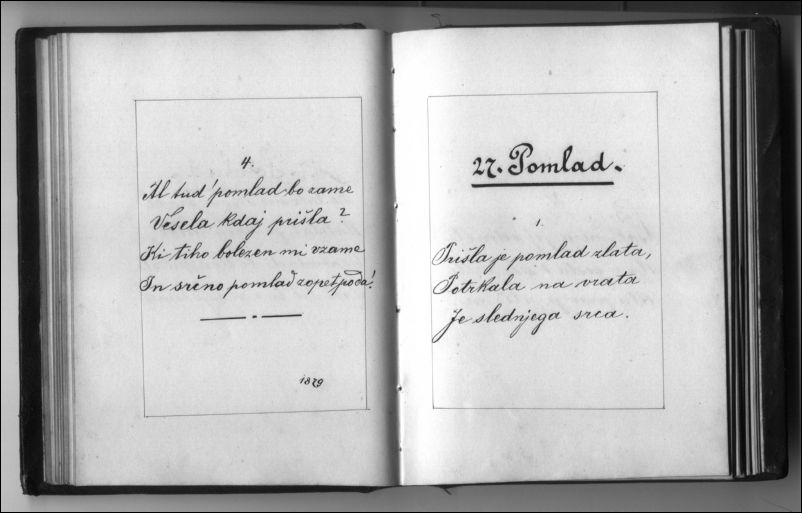 4.
Al tud' pomlad bo zame
Vesela kdaj prišla?
Ki tiho bolezen mi vzame
In srčno pomlad zopet poda!
1879
27. Pomlad.
1.
Prišla je pomlad zlata,
Potrkala na vrata
Je slednjega srca.